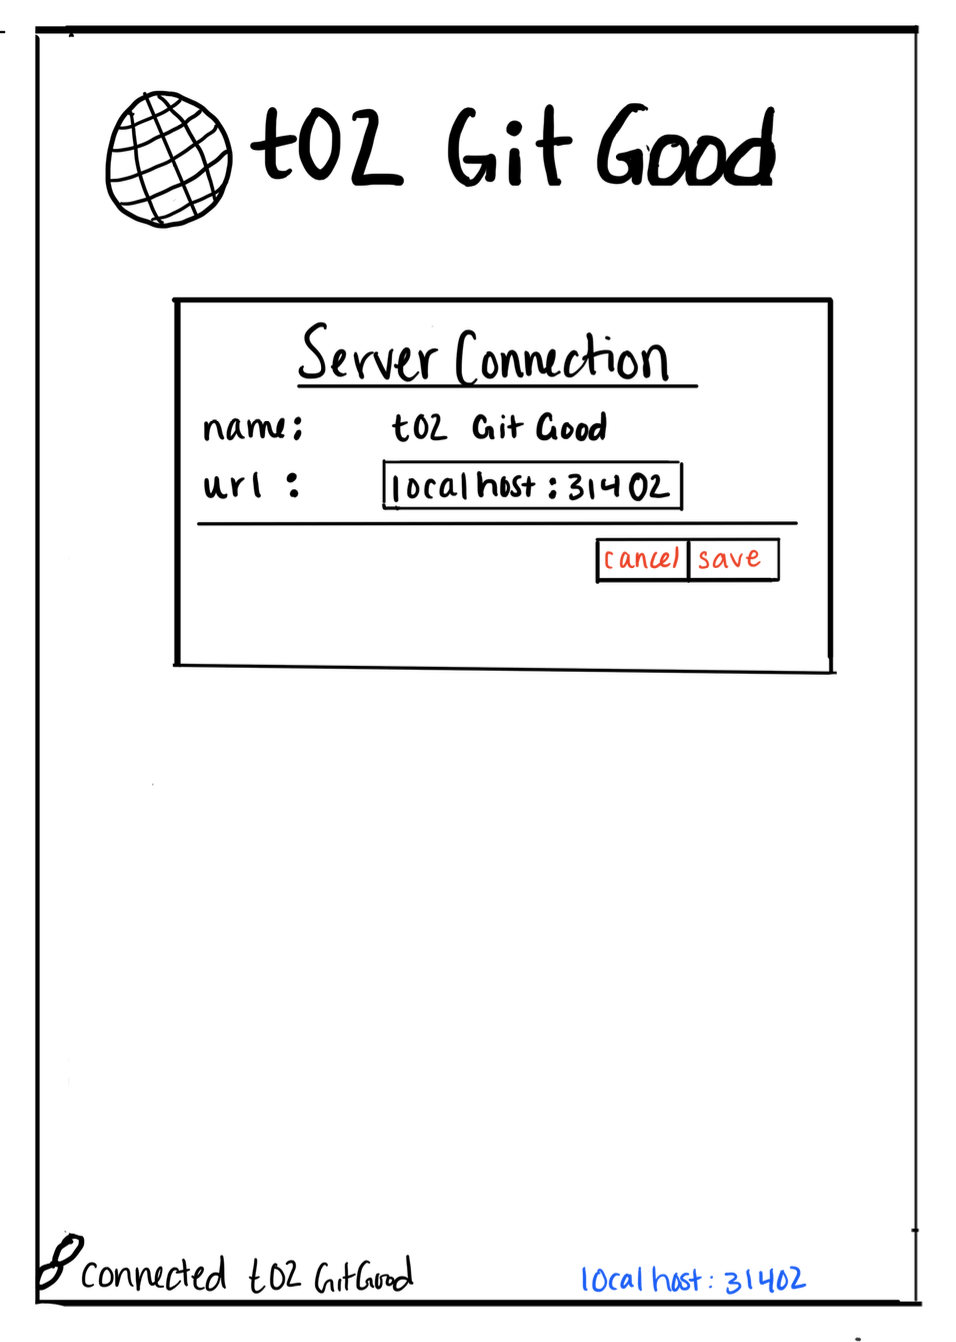 t02 Git Good
Server Connection
name: t02 Git Good
url : localhost:31402
cancel save
connected t02 GitGood localhost: 31402